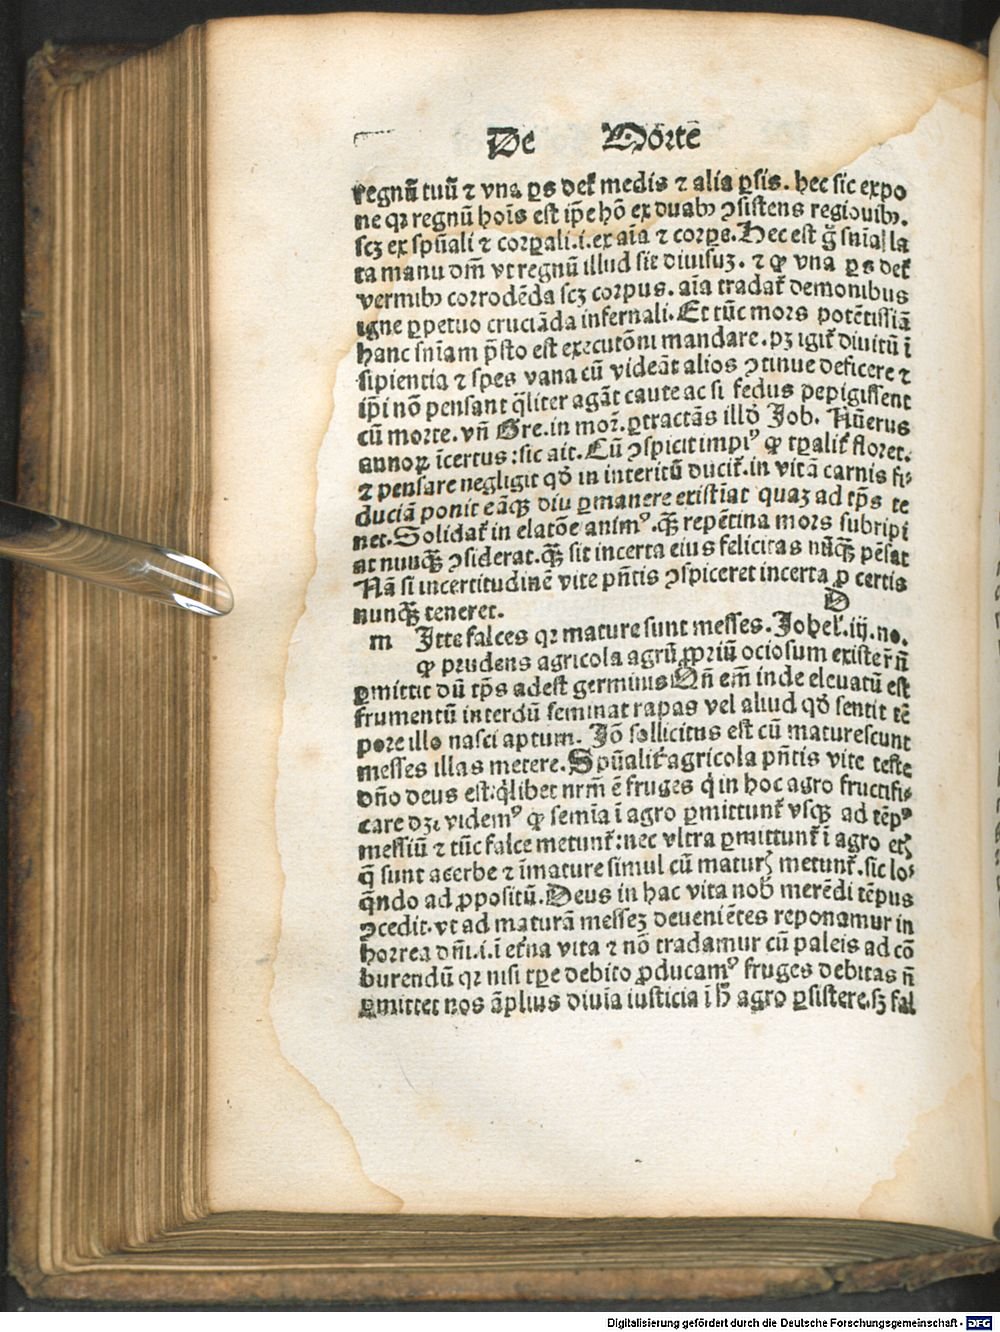 De Morte
regnū tuū ⁊ vna ꝑs det᷑ medis ⁊ alia ꝑsis. hec sic expo
ne qꝛ regnū hoīs est ip̄e hō ex duabꝰ ꝯsistens regiouibꝰ.
scꝫ ex spūali ⁊ corꝑali.i.ex aīa ⁊ corꝑe.Hec est g̃ snīa la
ta manu dn̄i vt regnū illud sic diuisuꝫ. ⁊ ꝙ vna ꝑs det᷑
vermibꝰ corrodēda scꝫ corpus. aīa tradat᷑ demonibus
igne ꝑpetuo cruciāda infernali. Et tūc mors potētissīa
hanc snīam p̄sto est executōni mandare. pꝫ igit᷑ diuitū ī
sipientia ⁊ spes vana cū videāt alios ꝯtinue deficere ⁊
ip̄i nō pensant q̄liter agāt caute ac si fedus pepigissent
cū morte. vn̄ Gre.in moꝛ. ꝑtractās illḋ Job. Nūerus
annoꝝ īcertus : sic ait. Cū ꝯspicit impiꝰ ꝙ tꝑalit᷑ floret.
⁊ pensare negligit qḋ in interitū ducit᷑. in vitā carnis fi⸗
duciā ponit eāqꝫ diu ꝑmanere existīat quaꝫ ad tp̄s te
net. Solidat᷑ in elatōe animꝰ. qꝫ repētina mors subripi
at nunqꝫ ꝯsiderat. qꝫ sit incerta eius felicitas nūqꝫ pēsat
Nā si incertitudinē vite pn̄tis ꝯspiceret incerta ꝓ certis
nunqꝫ teneret. D
m Jtte falces qꝛ mature sunt messes. Johel. iij. no.
ꝙ prudens agricola agrū ꝓpriū ociosum exister᷑ n̄
ꝑmittit dū tp̄s adest germinis Qn̄ em̄ inde eleuatū est
frumentū interdū seminat rapas vel aliud qḋ sentit tē
pore illo nasci aptum. Jō sollicitus est cū maturescunt
messes illas metere. Spūalit᷑ agricola pn̄tis vite teste
dn̄o deus est: q̄libet nrm̄ ē fruges q̇ in hoc agro fructifi⸗
care dꝫ. videmꝰ ꝙ semīa ī agro ꝑmittunt᷑ vsqꝫ ad tēpꝰ
messiū ⁊ tūc falce metunt᷑ : nec vltra ꝑmittunt᷑ ī agro etꝫ
q̄ sunt acerbe ⁊ īmature simul cū maturꝭ metunt᷑. sic lo⸗
q̄ndo ad ꝓpositū. Deus in hac vita nob̄ merēdi tēpus
ꝯcedit. vt ad maturā messeꝫ deueniētes reponamur in
horrea dn̄i.i.ī et᷑na vita ⁊ nō tradamur cū paleis ad cō
burendū qꝛ nisi tꝑe debito ꝓducamꝰ fruges debitas n̄
ꝑmittet nos āplius diuīa iusticia ī h̄ agro ꝑsistere. sꝫ fal
Digitalisierung gefördert durch die Deutsche Forschungsgemeinschaft - DFG